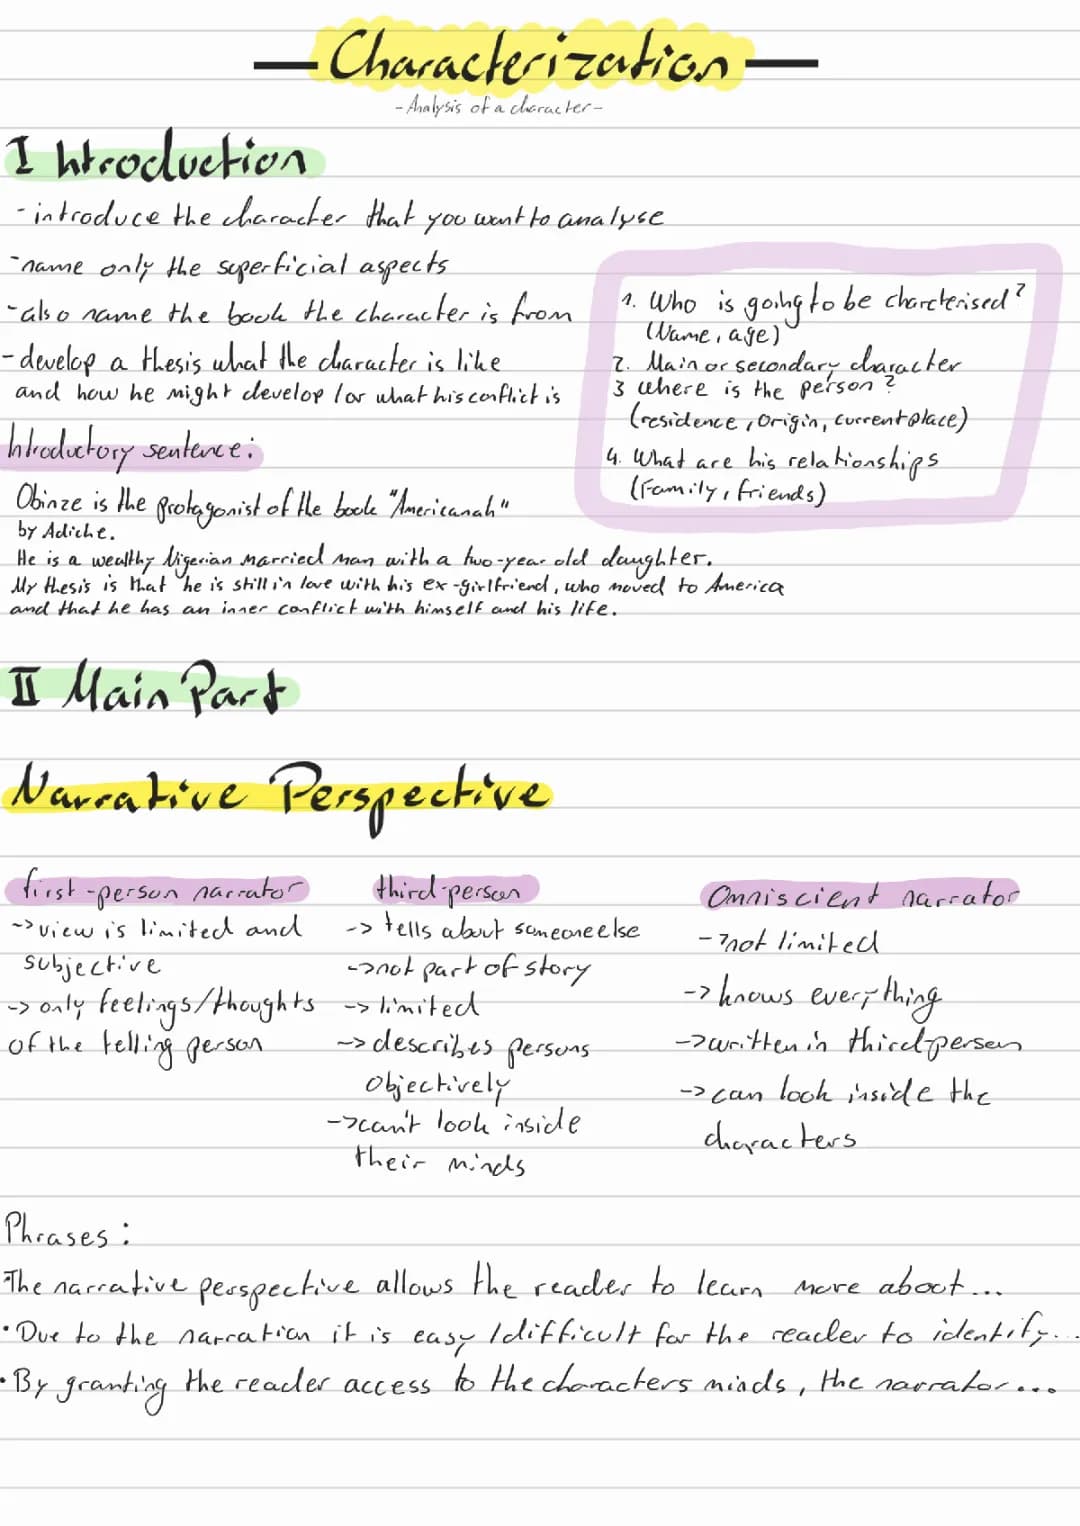 Characterization
- Analysis of a character -
I Introduction
- introduce the character that you want to analyse
- name only the superficial aspects
- also name the book the character is from
- develop a thesis what the character is like
and how he might develop / or what his conflict is
1. Who is going to be charcterised?
(Name, age)
2. Main or secondary character
3 where is the person?
(residence, origin, current place)
4. What are his relationships
(Family, friends)
Introductory sentence:
Obinze is the protagonist of the book "Americanah"
by Adiche.
He is a wealthy Nigerian married man with a two-year old daughter.
My thesis is that he is still in love with his ex-girlfriend, who moved to America
and that he has an inner conflict with himself and his life.
II Main Part
Narrative Perspective
first-person narrator
-> view is limited and
subjective
-> only feelings/thoughts
of the telling person
third-person
-> tells about someone else
-> not part of story
-> limited
-> describes persons
objectively
-> can't look inside
their minds
Omniscient narrator
-> not limited
-> knows everything
-> written in third-person
-> can look inside the
characters
Phrases:
• The narrative perspective allows the reader to learn more about...
• Due to the narration it is easy / difficult for the reader to identify...
• By granting the reader access to the characters minds, the narrator...